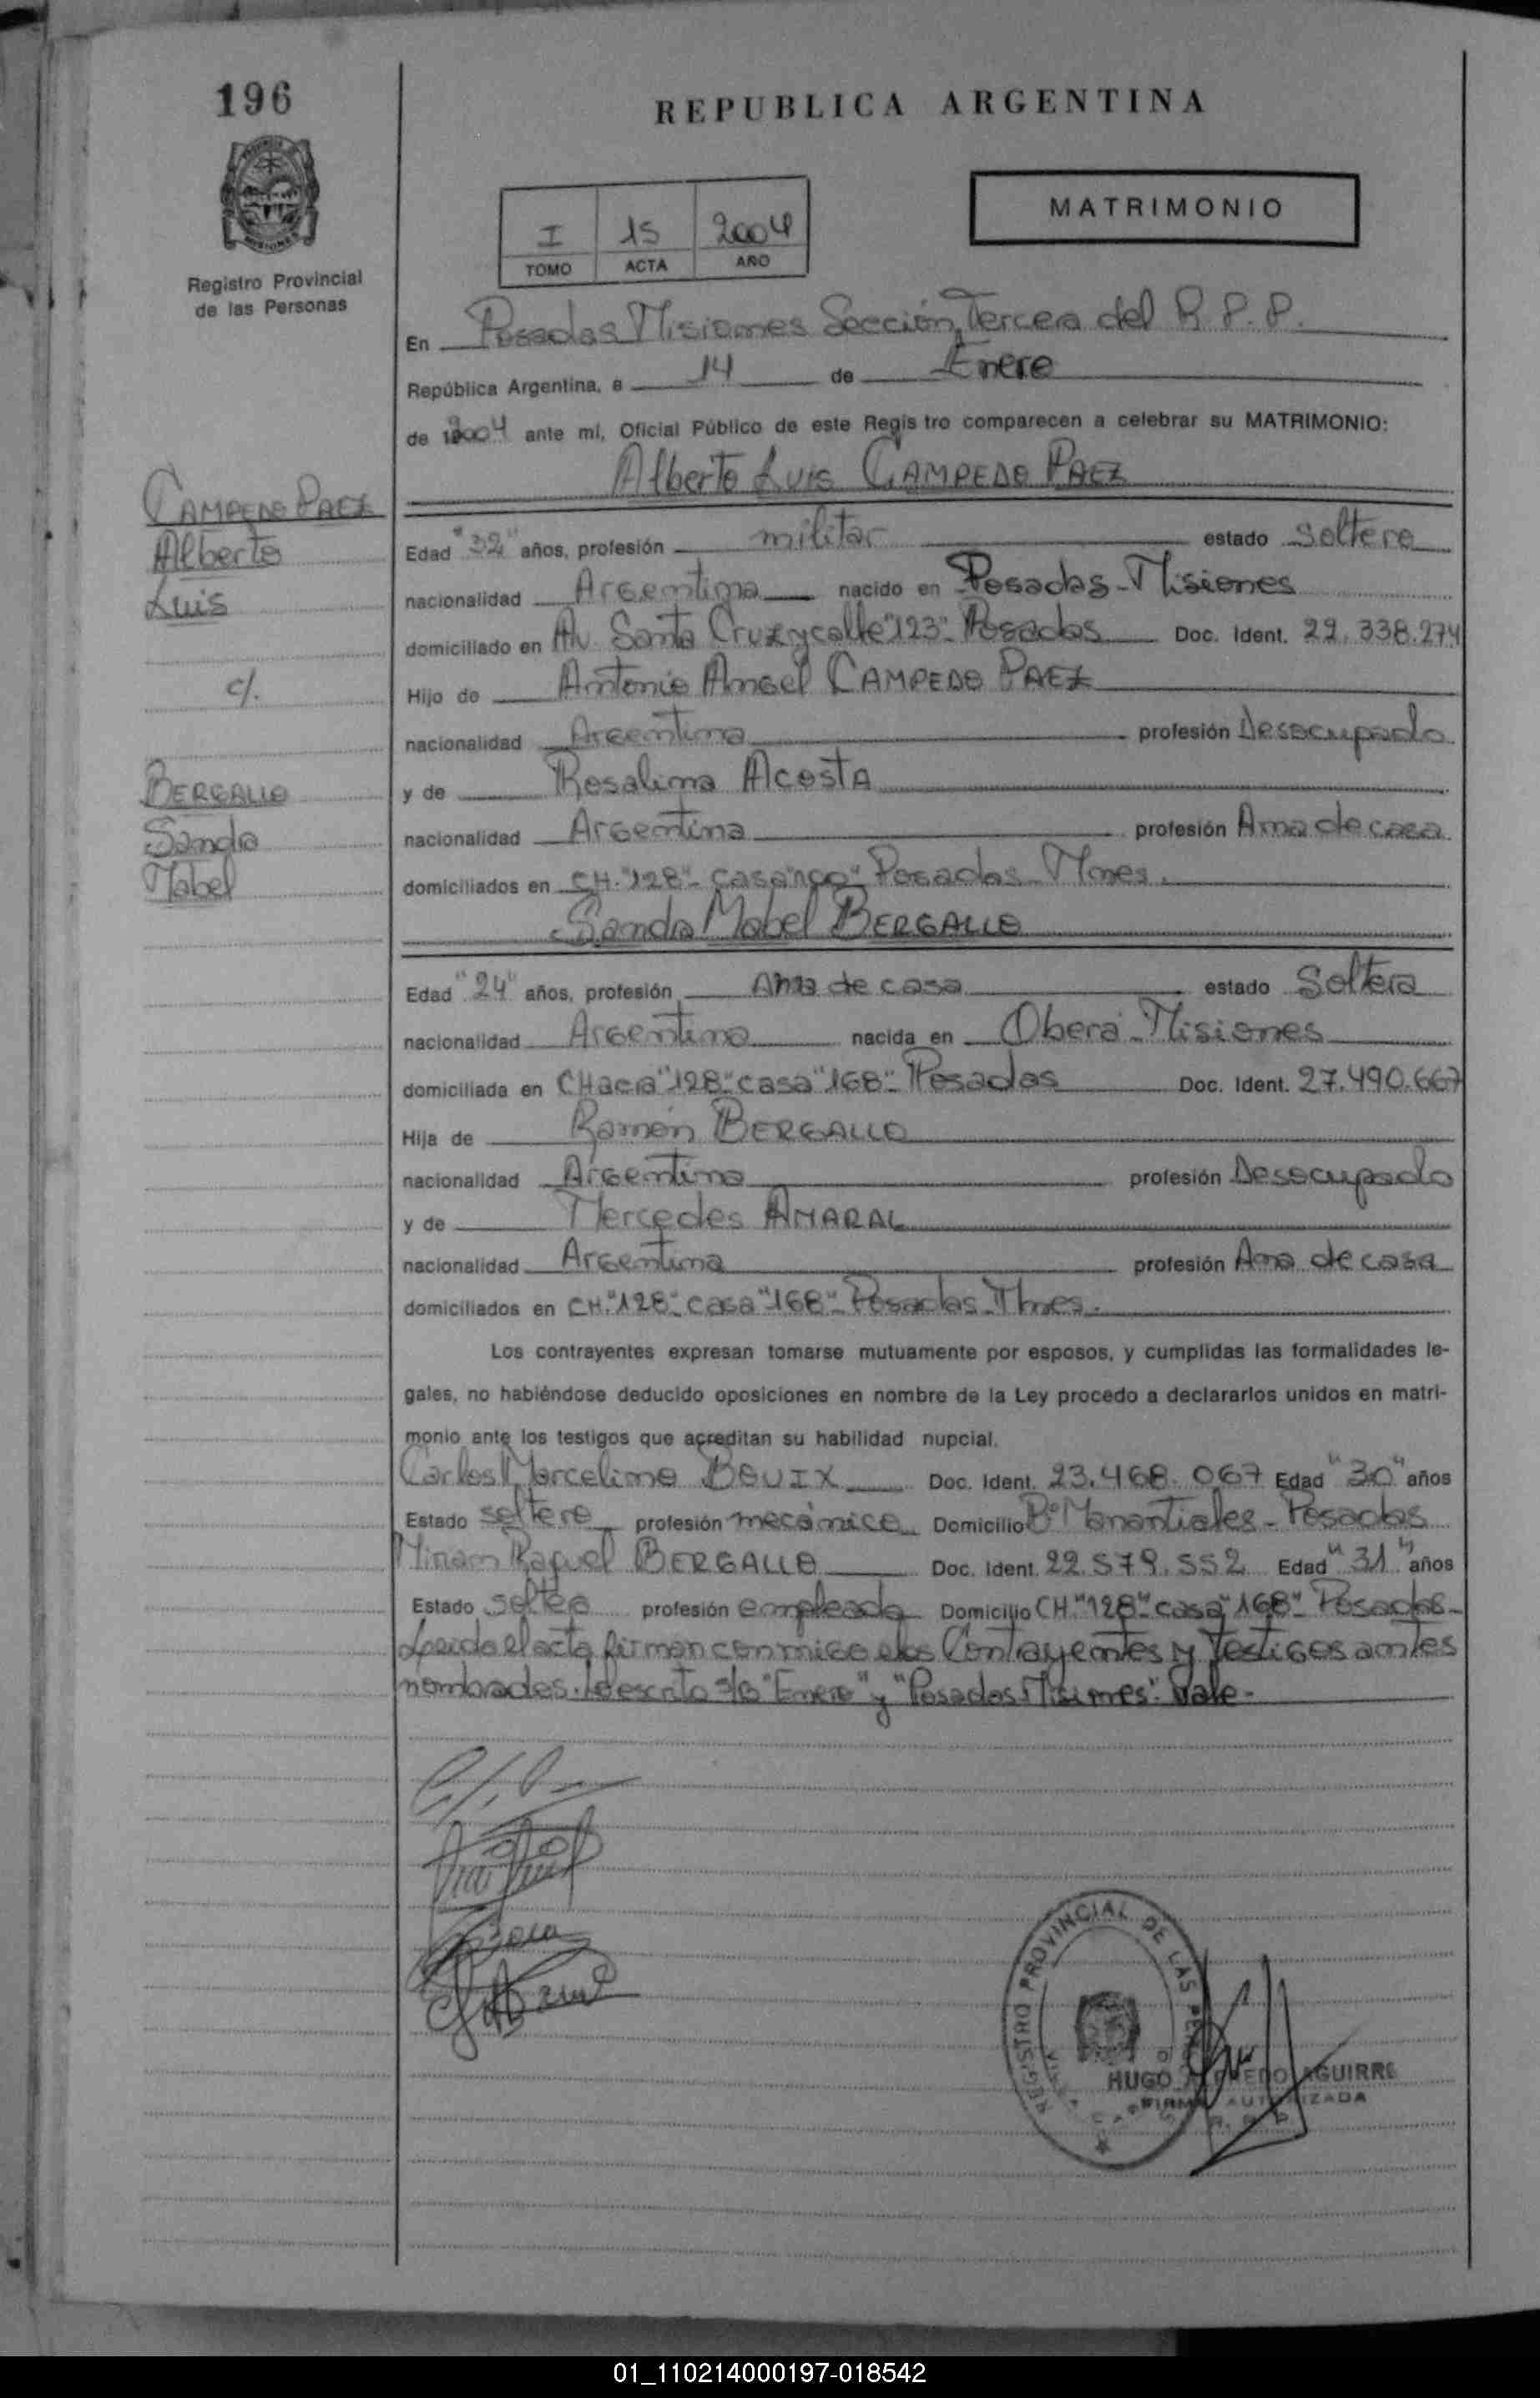 196
REPUBLICA ARGENTINA
Registro Provincial
de las Personas
I 15 2004
TOMO ACTA AÑO
MATRIMONIO
En Posadas Misiones Sección Tercera del R.P.P.
República Argentina, a 14 de Enero
de 2004 ante mí, Oficial Público de este Registro comparecen a celebrar su MATRIMONIO:
Alberto Luis CAMPEDO PAEZ
CAMPEDO PAEZ
Alberto
Luis
c/.
BERGALLO
Sandra
Mabel
Edad "32" años, profesión militar estado soltero
nacionalidad Argentina nacido en Posadas-Misiones
domiciliado en Av. Santa Cruz y calle "123"- Posadas Doc. Ident. 22.338.274
Hijo de Antonio Angel CAMPEDO PAEZ
nacionalidad Argentina profesión Desocupado
y de Rosalina ACOSTA
nacionalidad Argentina profesión Ama de casa
domiciliados en CH. "128"- casa Posadas-Mnes.
Sandra Mabel BERGALLO
Edad "24" años, profesión Ama de casa estado Soltera
nacionalidad Argentina nacida en Oberá-Misiones
domiciliada en CHacra "128"- casa "168"- Posadas Doc. Ident. 27.490.667
Hija de Ramón BERGALLO
nacionalidad Argentina profesión Desocupado
y de Mercedes AMARAL
nacionalidad Argentina profesión Ama de casa
domiciliados en CH. "128"- casa "168"- Posadas-Mnes.
Los contrayentes expresan tomarse mutuamente por esposos, y cumplidas las formalidades le-
gales, no habiéndose deducido oposiciones en nombre de la Ley procedo a declararlos unidos en matri-
monio ante los testigos que acreditan su habilidad nupcial.
Carlos Marcelino BOUIX Doc. Ident. 23.468.067 Edad "30" años
Estado soltero profesión mecánico Domicilio Bº Manantiales - Posadas
Miriam Raquel BERGALLO Doc. Ident. 22.579.552 Edad "31" años
Estado soltera profesión empleada Domicilio CH. "128"- casa "168"- Posadas-
Leida el acta firman conmigo los Contrayentes y Testigos antes
nombrados. lo escrito s/b "Enero" y "Posadas Misiones". Vale-
REGISTRO PROVINCIAL DE LAS
HUGO AGUIRRE
FIRMA AUTORIZADA
01_110214000197-018542